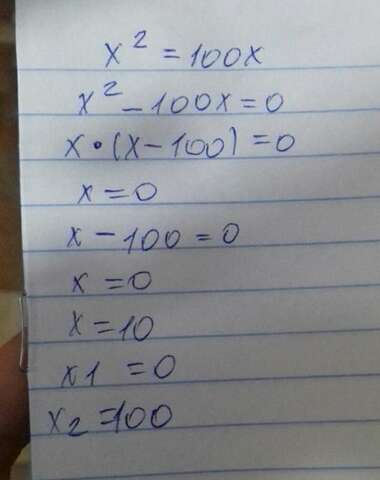 x² = 100x
x² - 100x = 0
x • (x - 100) = 0
x = 0
x - 100 = 0
x = 0
x = 10
x1 = 0
x₂ = 100